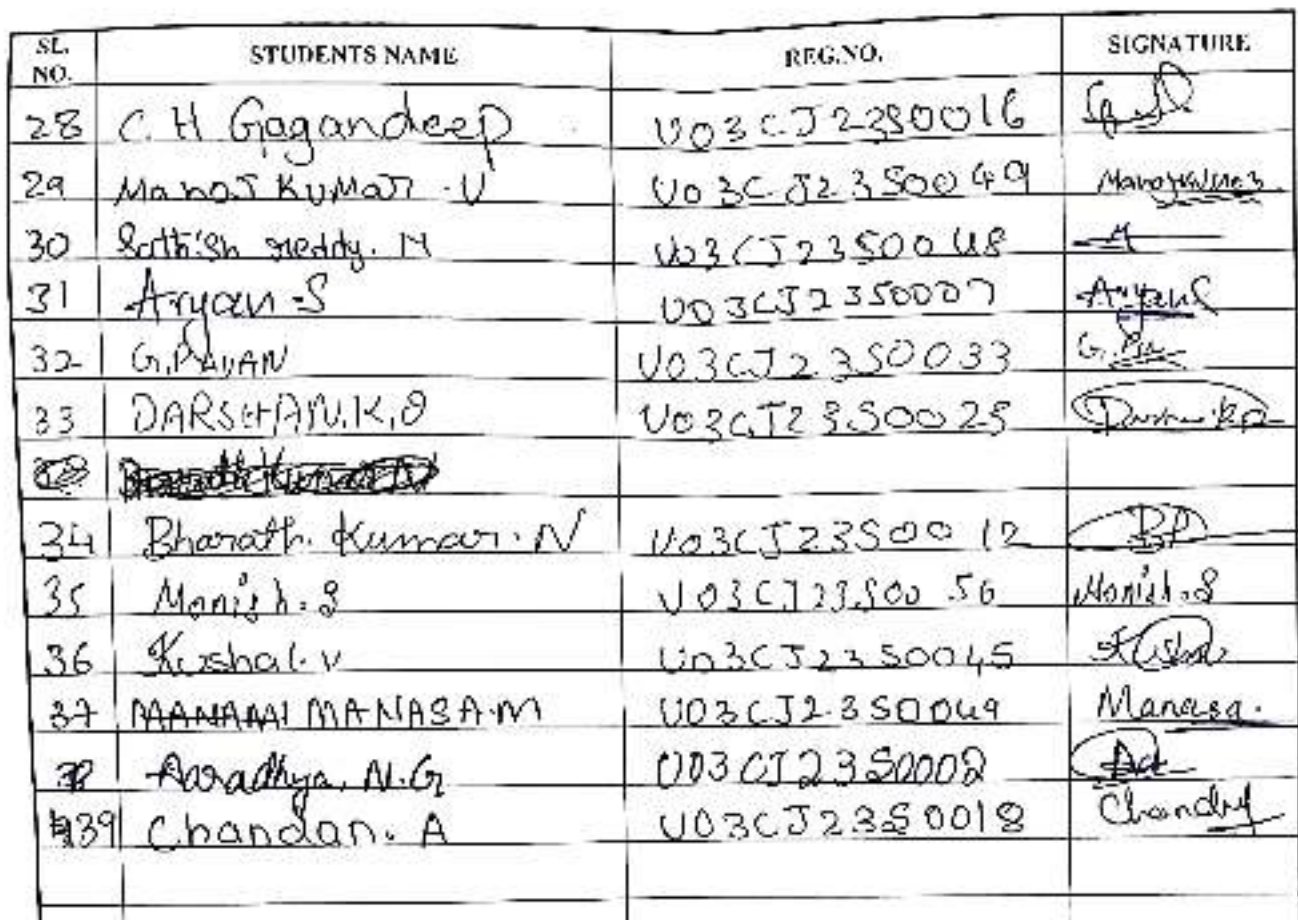 SL. NO. STUDENTS NAME REG.NO. SIGNATURE
28 C.H Gagandeep U03CJ23S0016
29 Manoj Kumar .V U03CJ23S0049 Manojkumar
30 Sathish reddy. M U03CJ23S0048
31 Aryan S U03CJ23S0007 Aryan S
32 G.PAVAN U03CJ23S0033 G.
33 DARSHAN.K. U03CJ23S0025
34 Bharath Kumar. N U03CJ23S0012
35 Monish.S U03CJ23S0056 Monish.S
36 Kushal.v U03CJ23S0045
37 MANASA.M U03CJ23S0049 Manasa.
38 Aaradhya. N.G U03CJ23S0002
39 Chandan. A U03CJ23S0018